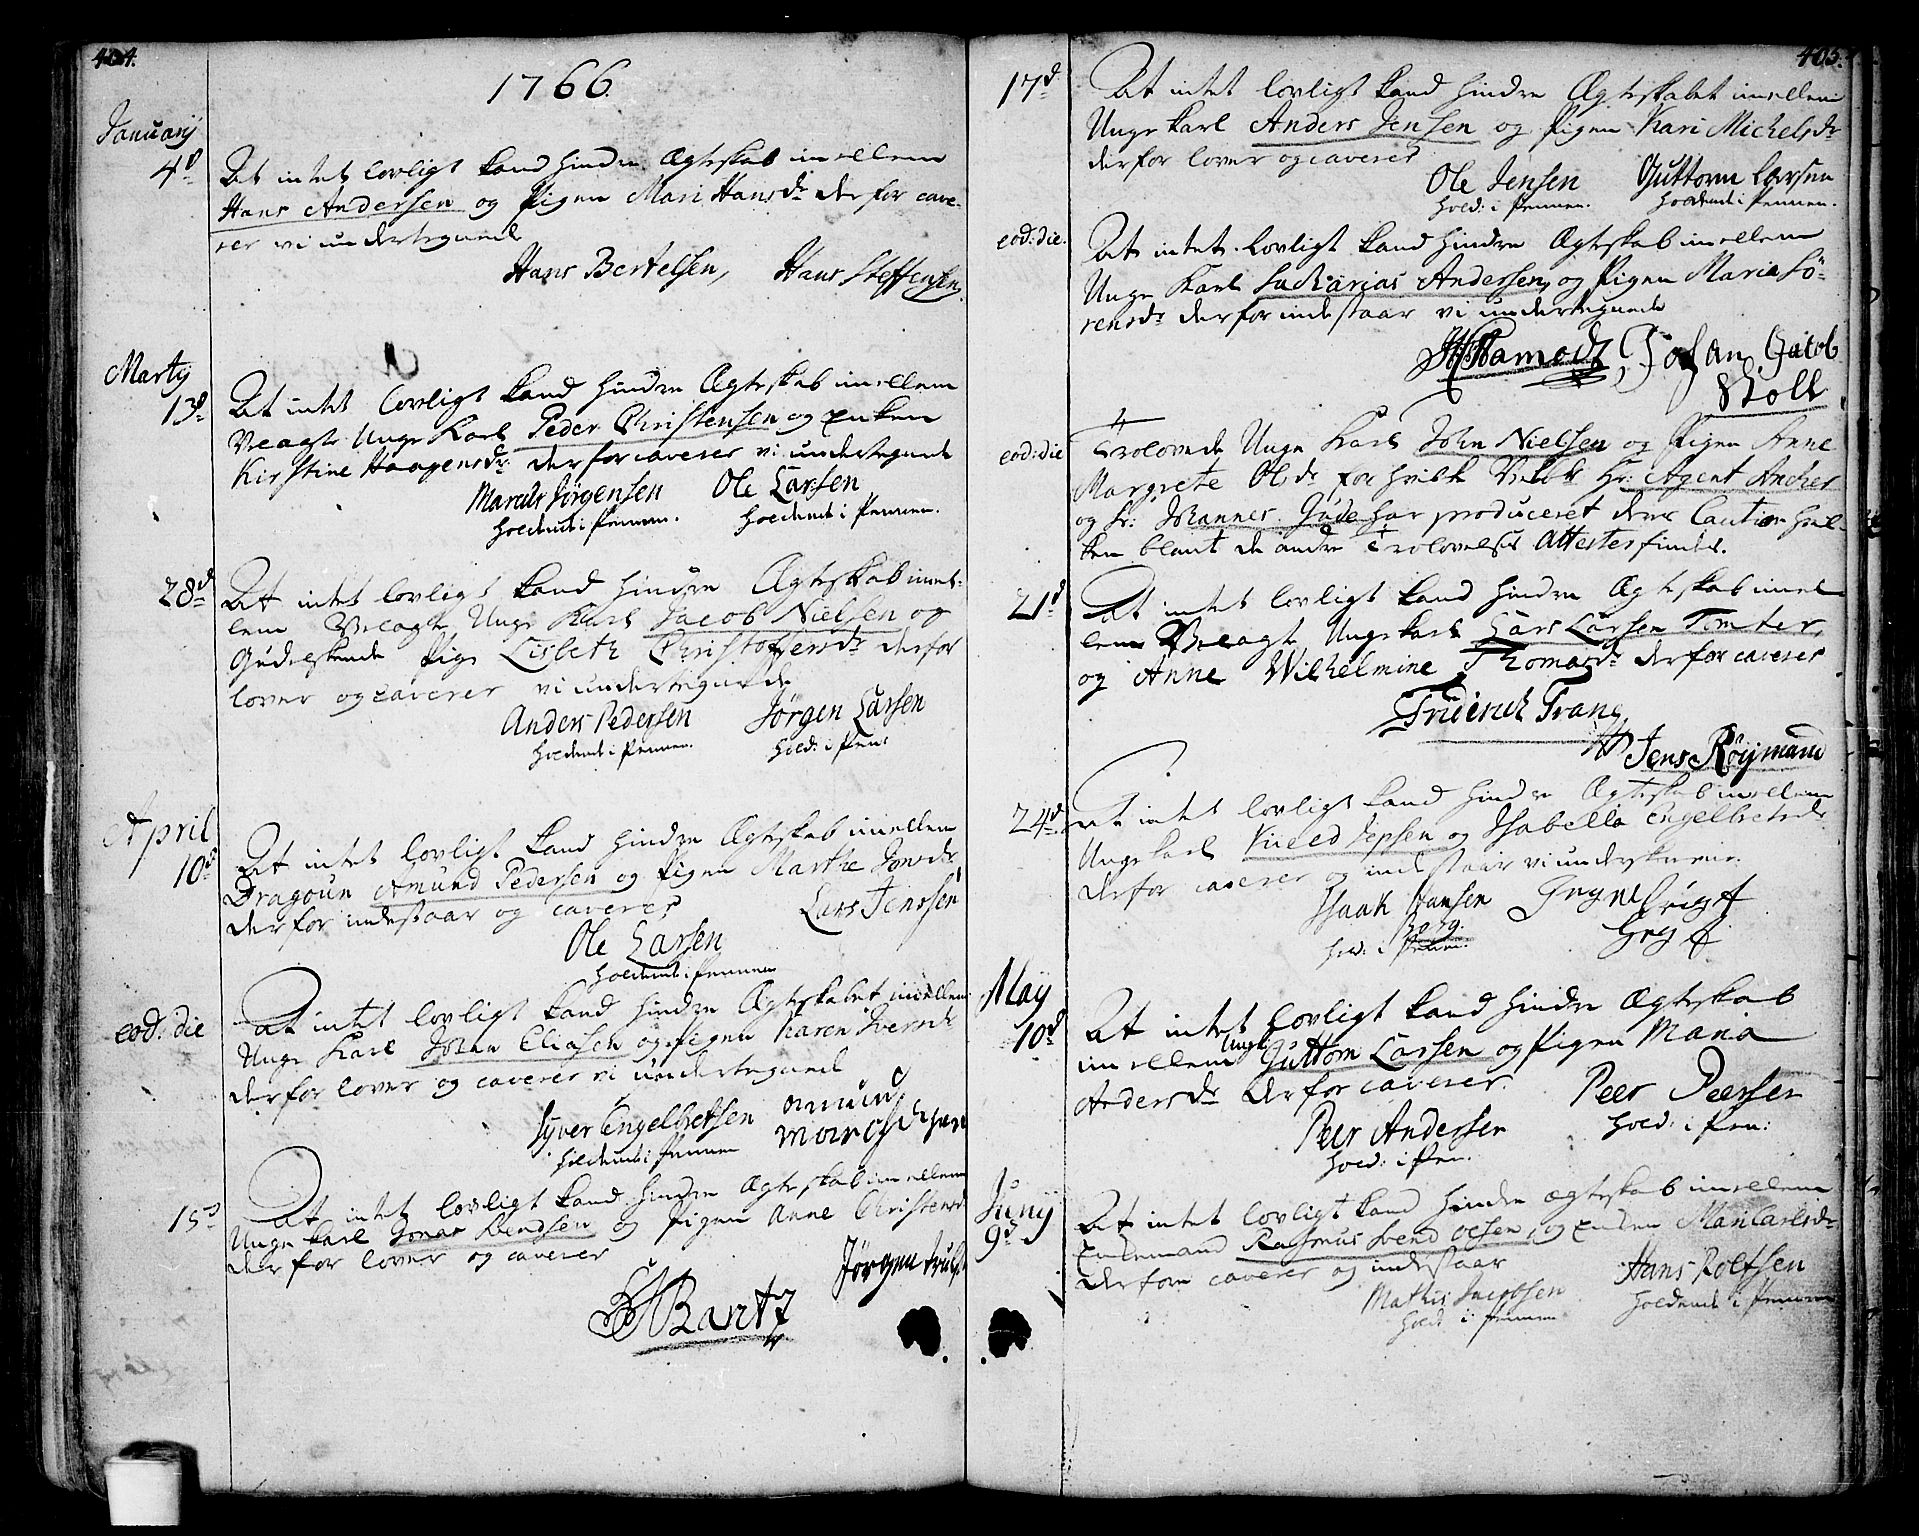 404.
1766.
Januarij
4d
At intet lovligt kand hindre Ægteskab imellem
Hans Andersen og Pigen Mari Hansdr derfor cave-
rer vi undertegnede
Hans Bertelsen, Hans Steffensen
Martij
13d
At intet lovligt kand hindre Ægteskab imellem
Velagte Unge Karl Peder Christensen og Enken
Kirstine Haagensdr derfor caverer vi undertegnede
Marcus Jørgensen Ole Larsen
holdende i Pennen. holdende i Pennen.
28d
At intet lovligt kand hindre Ægteskab imel-
lem Velagte Unge Karl Jacob Nielsen og
Gudelskende Pige Lisbeth Christophersdr derfor
lover og caverer vi undertegnede
Anders Pedersen Jørgen Larsen
holdende i Pennen. hold: i Pen:
April
10d
At intet lovligt kand hindre Ægteskab imellem
Dragoun Amund Pedersen og Pigen Marthe Jonsdr
derfor indestaar og caverer Lars Jenssen
Ole Larsen
holdende i Pennen
eod: die
At intet lovligt kand hindre Ægteskabet imellem
Unge Karl Johan Eliasen og Pigen Karen Iversdr
derfor lover og caverer vi undertegnede
Syver Engelbretsen Omund
holdende i Pennen
15d
At intet lovligt kand hindre Ægteskab imellem
Unge karl Jonas Bendsen og Pigen Anne Christensd
derfor lover og caverer
Jørgen truls
Bartz
405.
17d
At intet lovligt kand hindre Ægteskabet imellem
Unge karl Anders Jensen og Pigen Kari Michelsdr
derfor lover og caverer
Ole Jensen Guttorm Larsen
hold: i Pennen. holdende i Pennen.
eod: die.
At intet lovligt kand hindre Ægteskab imellem
Unge Karl Sacharias Andersen, og Pigen Maria Sö-
rensdr derfor indestaar vi undertegnede
Johan Jacob
Boll
eod: die
Trolovede Unge Karl John Nielsen og Pigen Anne
Margrete Olsdr, for hvilke Velbr Hr: Agent Ancher
og Sr: Johannes Gude har produceret deres Caution hvil-
ken blant de andre Trolovelses Attester findes.
21d
At intet lovligt kand hindre Ægteskab imel-
lem Velagte Unge karl Lars Larsen Tomter,
og Anne Wilhelmine Thomasdr derfor caverer
Friderich Trane
Jens Röijmand
24d
At intet lovligt kand hindre Ægteskab imellem
Unge karl Jepsen og Isabella Engelbretsdr
derfor caverer og indestaar vi underskrevne.
Isaak Hansen
Borg.
hold: i Pennen.
Maij
10d
At intet lovligt kand hindre Ægteskab
imellem Ungk: Guttorm Larsen og Pigen Maria
Andersdr derfor caverer.
Peer Andersen Peer Peersen
hold: i Pen. hold: i Pen:
Junij
9d
At intet lovligt kand hindre ægteskab imellem
Enkemand Rasmus Svend Olsen, og Enken Mari Carlsdr
derfore caverer og indestaar
Mathis Jacobsen Hans Rolfsen
hold i Pennen holdende i Pennen